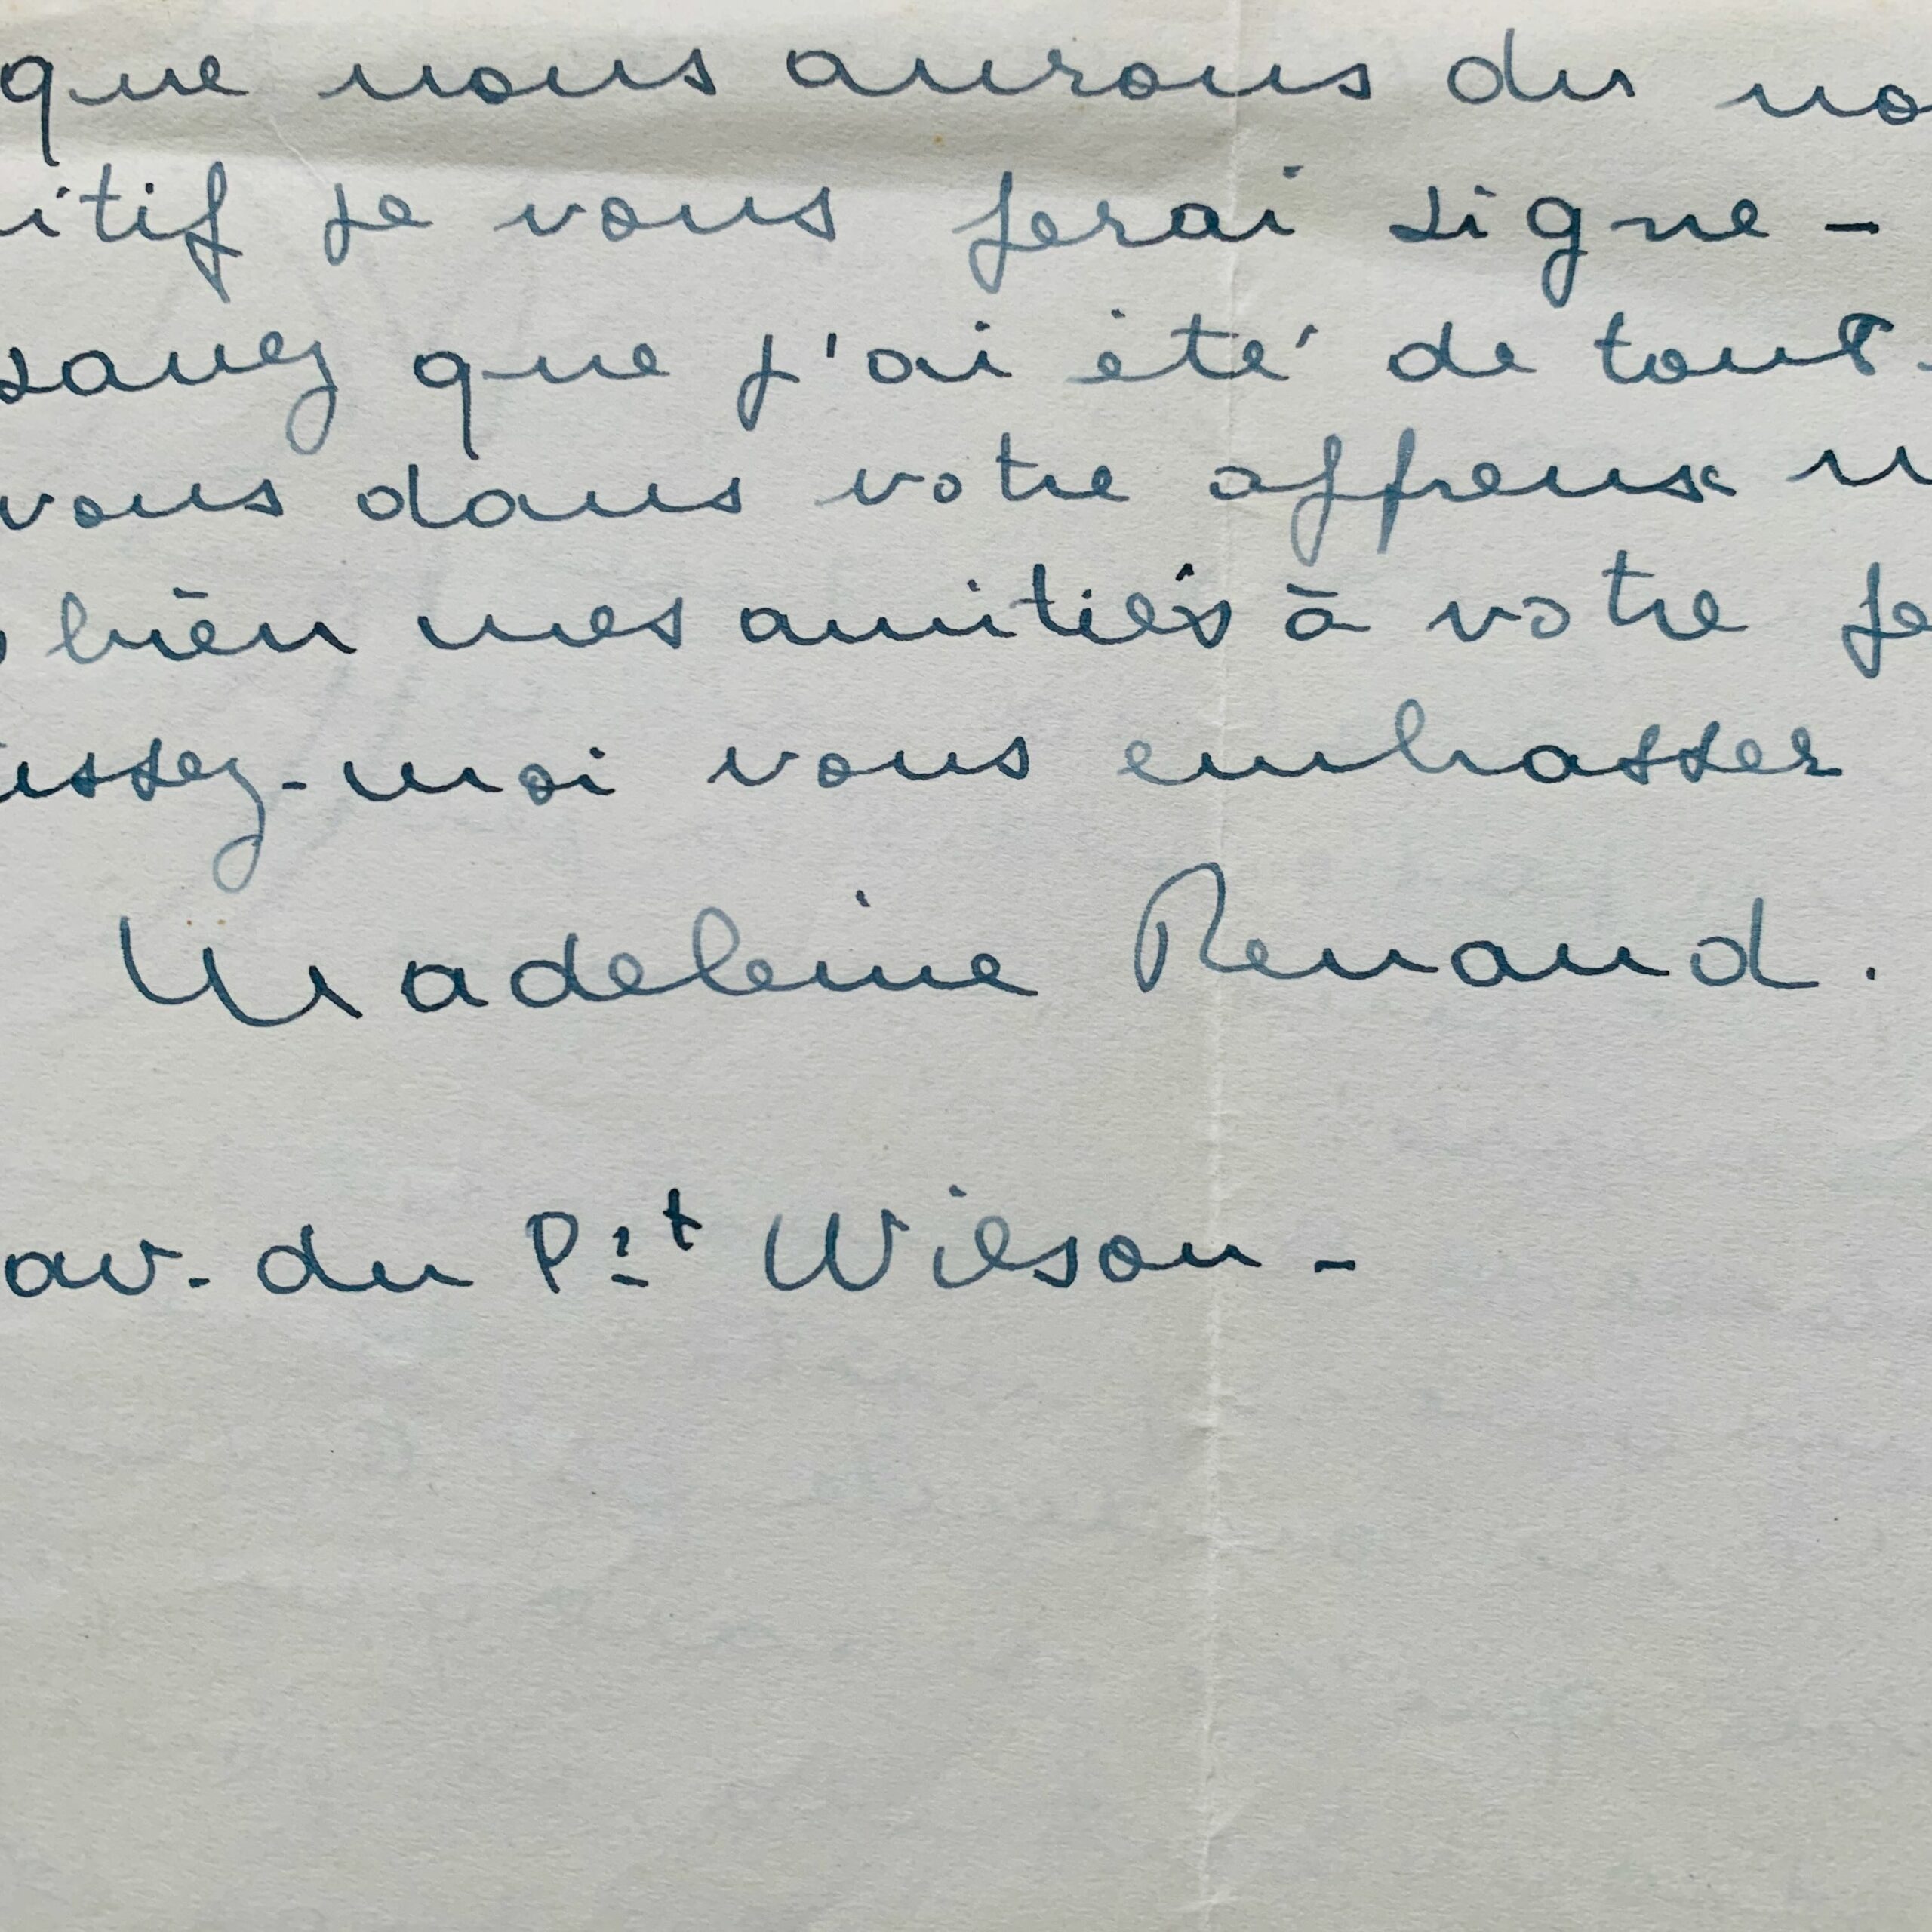 que nous aurons du no
itif je vous ferai signe -
savez que j'ai été de tout
vous dans votre affreux m
bien mes amitiés à votre fe
issez-moi vous embrasser
Madeleine Renaud.
av. du P.t Wilson -